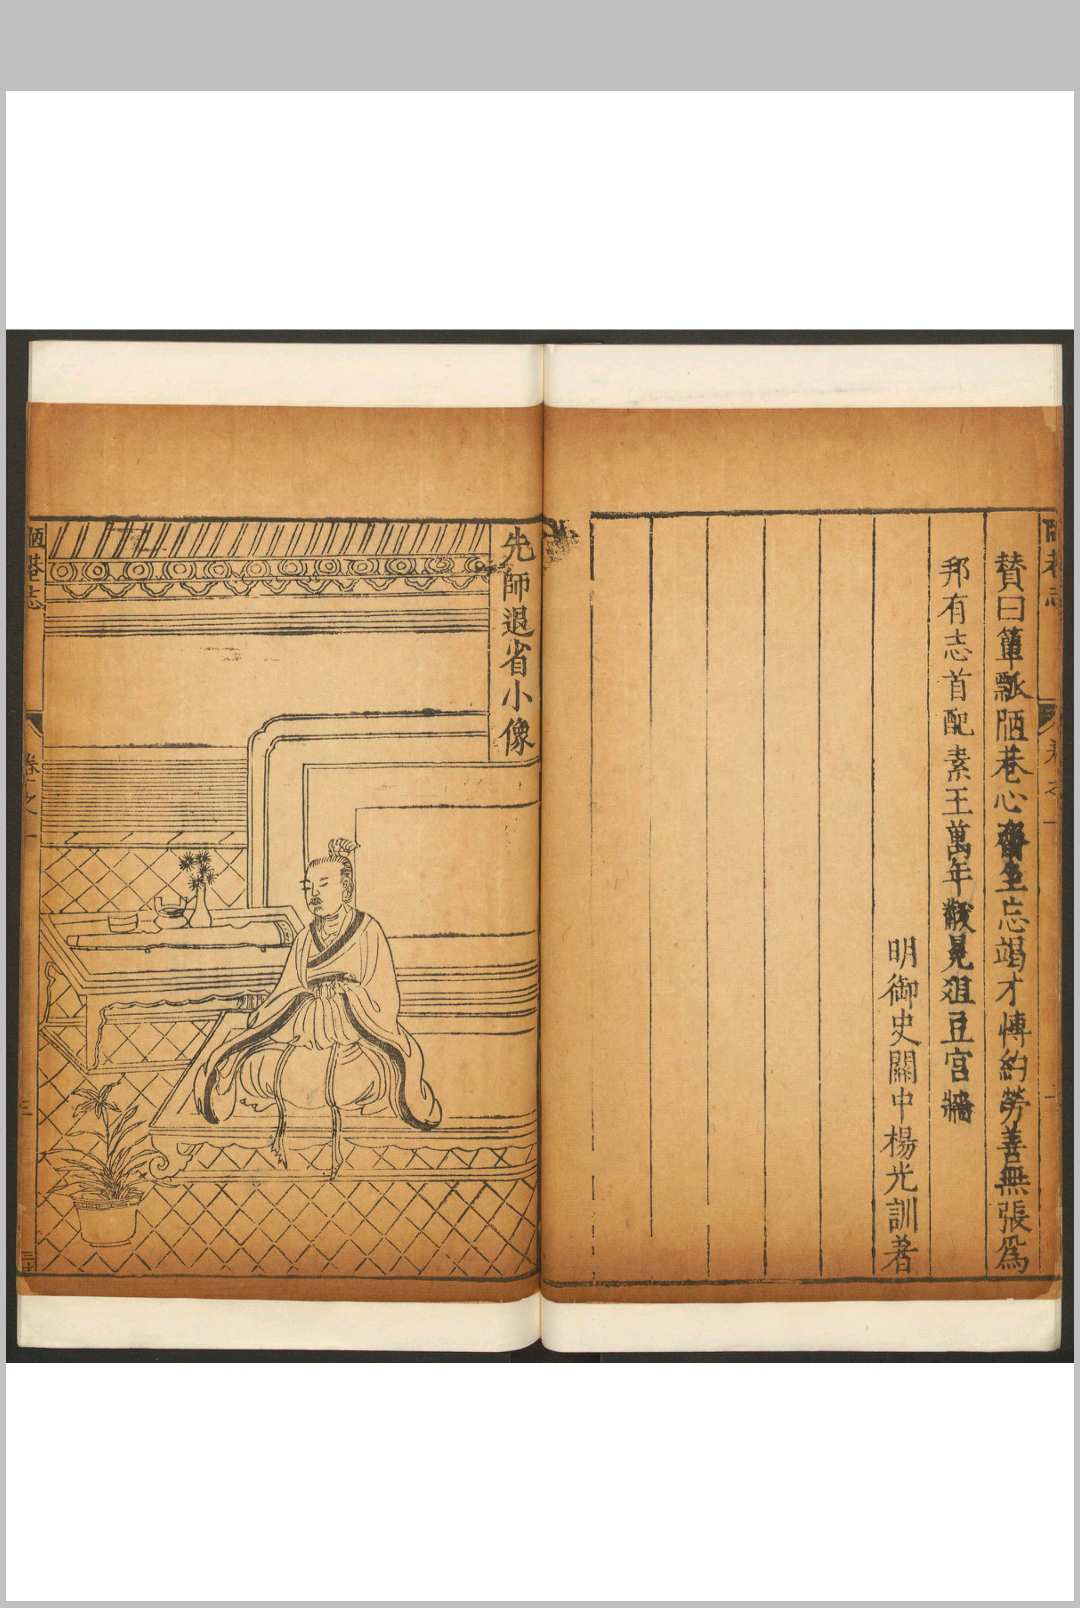 陋巷志
卷之一
贊曰簞瓢陋巷心齋坐忘竭才愽約勞善無張爲
邦有志首配素王萬年黻冕俎豆宮牆
明御史關中楊光訓著
先師退省小像
陋巷志
卷之一
三